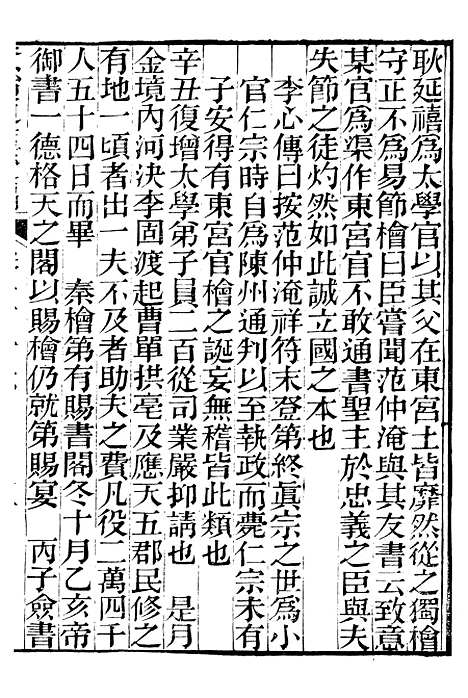 耿延禧爲太學官以其父在東宮士皆靡然從之獨檜
守正不爲易節檜曰臣嘗聞范仲淹與其友書云致意
某官爲渠作東宮官不敢通書聖主於忠義之臣與夫
失節之徒灼然如此誠立國之本也
李心傳曰按范仲淹祥符末登第終眞宗之世爲小
官仁宗時自爲陳州通判以至執政而薨仁宗未有
子安得有東宮官檜之誕妄無稽皆此類也
辛丑復增太學弟子員二百從司業嚴抑請也　是月
金境內河決李固渡起曹單拱亳及應天五郡民修之
有地一頃者出一夫不及者助夫之費凡役二萬四千
人五十四日而畢　秦檜第有賜書閣冬十月乙亥帝
御書一德格天之閣以賜檜仍就第賜宴　丙子僉書